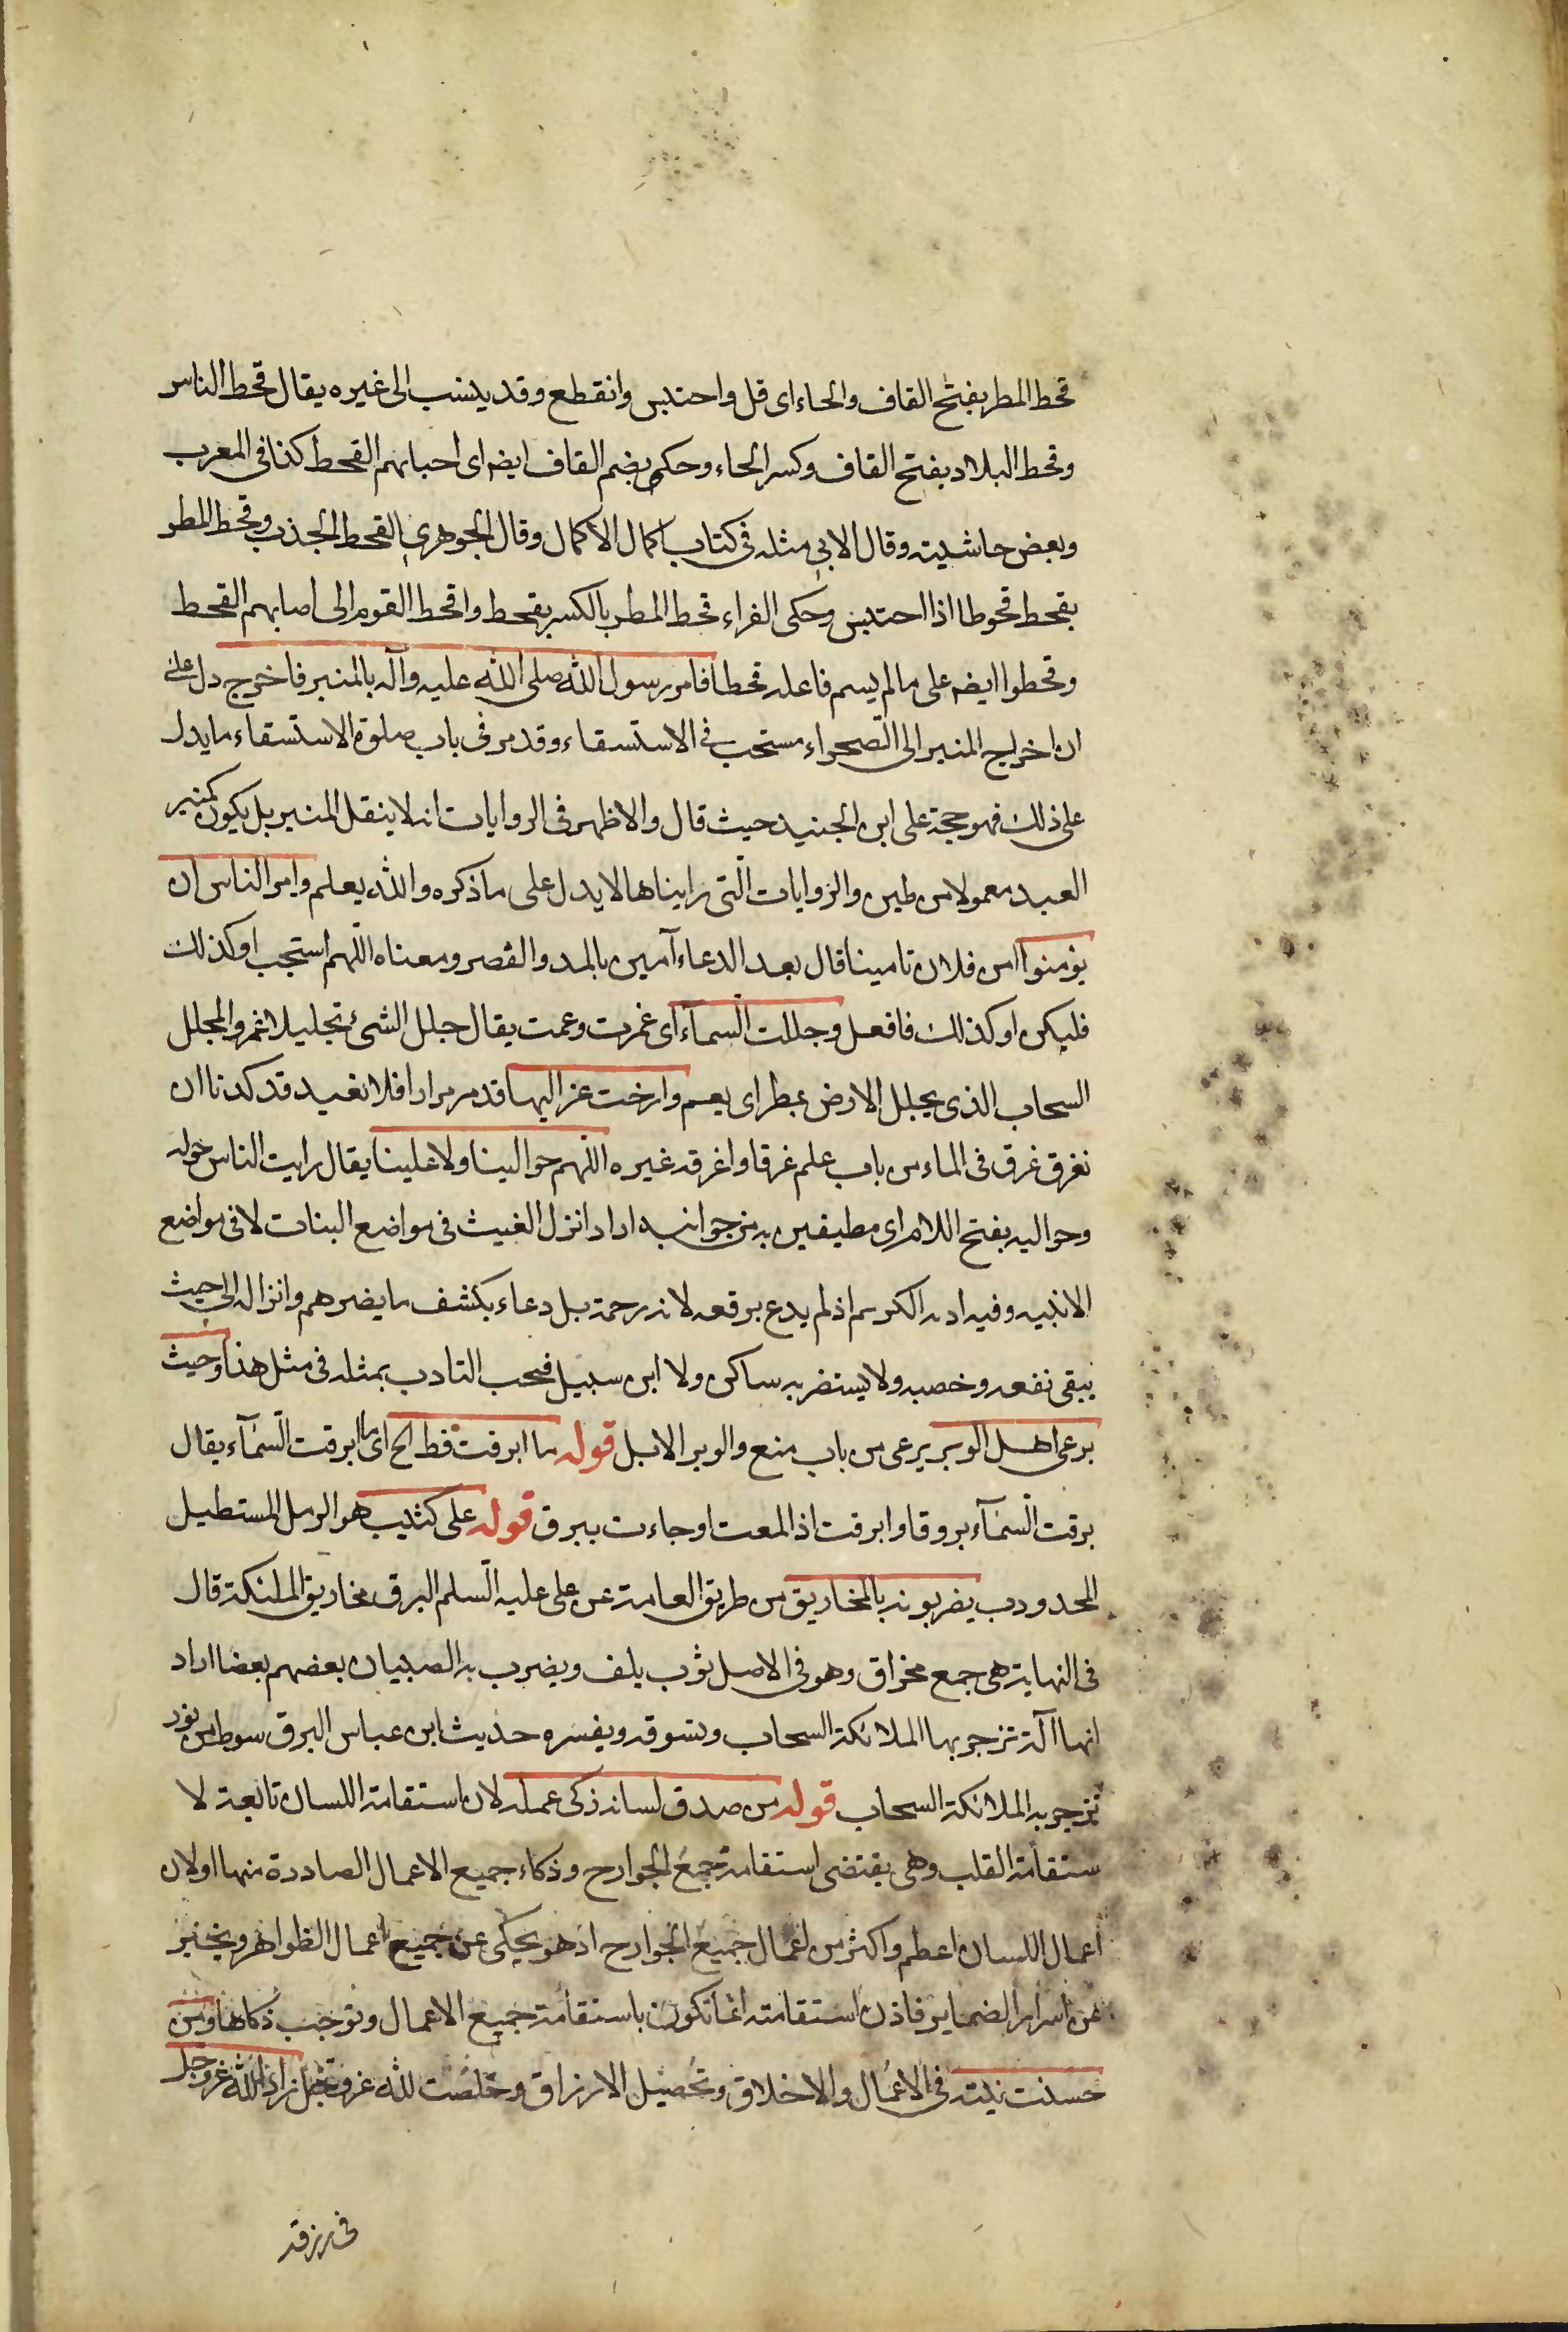 قحط المطر بفتح القاف والحاء اى قل واحتبس وانقطع وقد ينسب الى غيره يقال قحط الناس
وقحط البلاد بفتح القاف وكسر الحاء وحكى بضم القاف ايضه اى احبابهم القحط كذا فى المعرب
وبعض حاشيته وقال الابى مثله فى كتاب اكمال الاكمال وقال الجوهرى القحط الجذب وقحط المطر
يقحط قحوطا اذا احتبس وحكى الفراء قحط المطر بالكسر يقحط واقحط القوم الى اصابهم القحط
وقحطوا ايضه على ما لم يسم فاعله قحطا فامر رسول الله صلى الله عليه وآله بالمنبر فاخرج دل على
ان اخراج المنبر الى الصحراء مستحب فى الاستسقاء وقد مر فى باب صلوة الاستسقاء ما يدل
على ذلك فهو حجة على ابن الجنيد حيث قال والاظهر فى الروايات انه لا ينقل المنبر بل يكون كمنبر
العيد معمولا من طين والروايات التى رايناها لا يدل على ما ذكره والله يعلم وامر الناس ان
يؤمنوا امن فلان تامينا قال بعد الدعاء آمين بالمد والقصر ومعناه اللهم استجب او كذلك
فليكن او كذلك فافعل وجللت السماء اى غمرت وعمت يقال جلل الشئ تجليلا غمر والمجلل
السحاب الذى يجلل الارض بمطر اى يعم وارخت عزاليها قد مر مرارا فلا نعيد قد كدنا ان
نغرق غرق فى الماء من باب علم غرقا واغرقه غيره اللهم حوالينا ولا علينا يقال رايت الناس حوله
وحواليه بفتح اللام اى مطيفين به من جوانبه اراد انزل الغيث فى مواضع النبات لا فى مواضع
الانبيه وفيه ادبه الكريم اذ لم يدع برفعه لانه رحمة بل دعاء بكشف ما يضرهم وانزاله الى حيث
يبقى نفعه وخصبه ولا يستضر به ساكن ولا ابن سبيل فيجب التادب بمثله فى مثل هذا وحيث
يرعى اهل الوبر يرعى من باب منع والوبر الابل قوله ما ابرقت قط الخ اى ما ابرقت السماء يقال
برقت السماء بروقا وابرقت اذا لمعت او جاءت ببرق قوله على كثيب هو الرمل المستطيل
المحدودب يضربونه بالمخاريق من طريق العامة عن على عليه السلم البرق مخاريق الملئكة قال
فى النهاية هى جمع مخراق وهو فى الاصل ثوب يلف ويضرب به الصبيان بعضهم بعضا اراد
انها آلة تزجر بها الملائكة السحاب وتسوقه ويفسره حديث ابن عباس البرق سوط من نور
تزجر به الملائكة السحاب قوله من صدق لسانه زكى عمله لان استقامة اللسان تابعة لا
ستقامة القلب وهى يقتضى استقامة جميع الجوارح وذكاء جميع الاعمال الصادرة منها او لان
اعمال اللسان اعظم واكثر من اعمال جميع الجوارح اذ هو يحكى عن جميع اعمال الظواهر ويخبر
عن اسرار الضماير فاذن استقامته انما تكون باستقامة جميع الاعمال وتوجب ذكاها ومن
حسنت نيته فى الاعمال والاخلاق وتحصيل الارزاق وخلصت لله عز وجل زاد الله عز وجل
فى رزقه